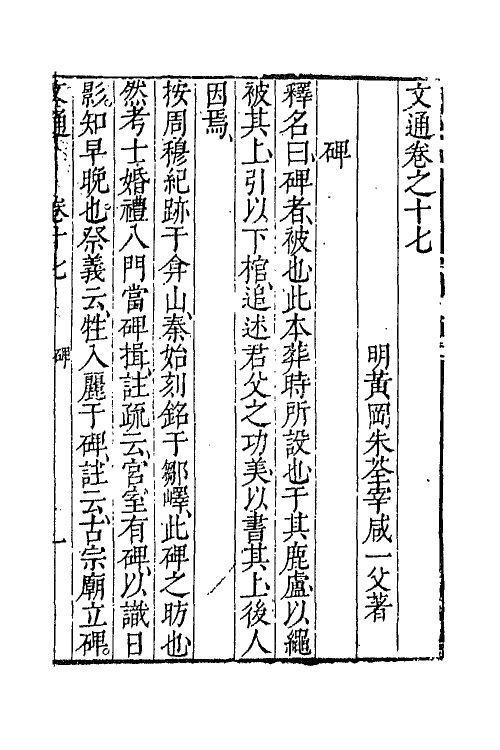 文通卷之十七
明黃岡朱荃宰咸一父著
碑
釋名曰碑者、被也此本葬時所設也于其鹿盧、以繩
被其上、引以下棺、追述君父之功美、以書其上、後人
因焉、
按周穆紀跡于弇山、秦始刻銘于鄒嶧、此碑之昉也、
然考士婚禮入門當碑揖、註疏云、宮室有碑、以識日
影、知早晚也、祭義云、牲入麗于碑、註云、古宗廟立碑。
文通 卷十七 碑 一